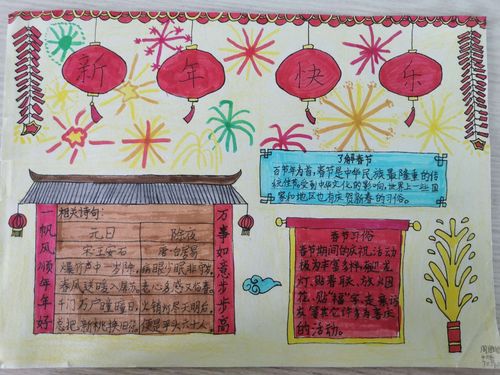 新年快乐
了解春节
百节年为首,春节是中华民族最隆重的传
统佳节受到中华文化的影响,世界上一些国
家和地区也有庆贺新春的习俗。
一帆风顺年年好
相关诗句:
元日
宋:王安石
爆竹声中一岁除,
春风送暖入屠苏。
千门万户曈曈日,
总把新桃换旧符。
除夜
唐·白居易
病眼少眠非守岁,
老心多感又临春。
火销灯尽天明后,
便是平头六十人。
万事如意步步高
春节习俗
春节期间的庆祝活动
极为丰富多样,有
灯、贴春联、放烟花
、贴“福”字、走亲访
友等其它许多有喜庆
的活动。